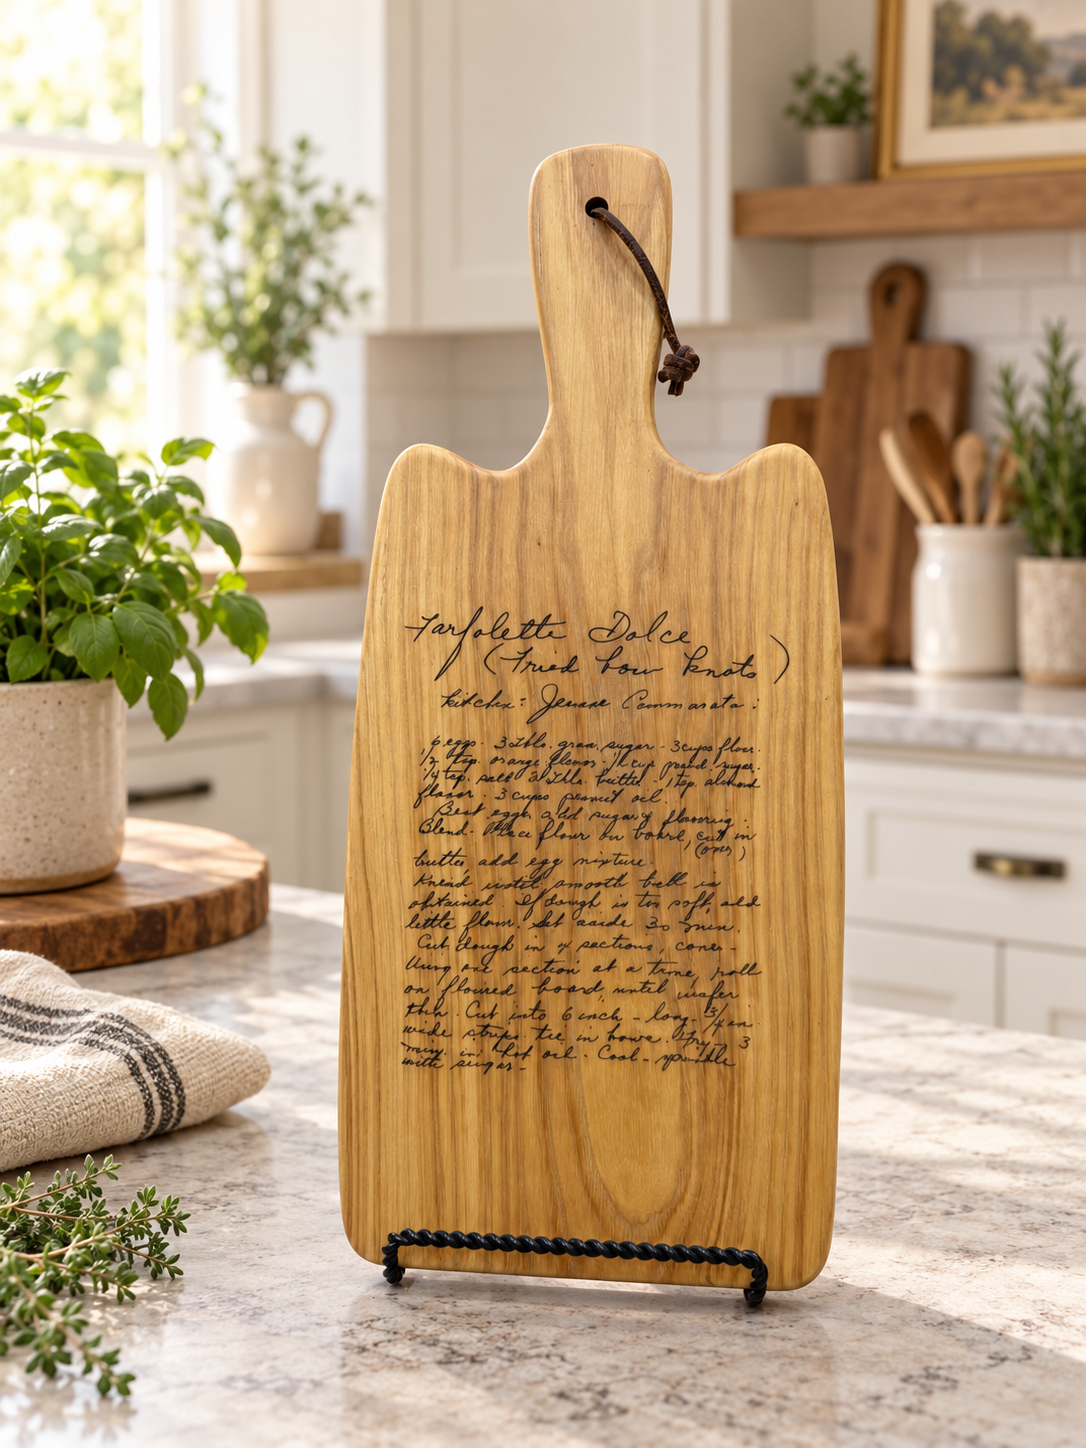 Farfolette Dolce
(Fried bow knots)
Kitchen: Cammarata:
6 eggs - 3 tbls. gran. sugar - 3 cups flour.
1/2 tsp. orange flavor - cup powd. sugar.
1/4 tsp. salt 2 tbls. butter - 1 tsp. almond
flavor - 3 cups peanut oil.
Beat eggs, add sugar & flavoring.
Blend. Place flour on board, cut in
butter, add egg mixture.
Knead until smooth ball is
obtained. If dough is too soft, add
little flour. Set aside 30 min.
Cut dough in 4 sections, cover -
Using one section at a time, roll
on floured board, until wafer
thin. Cut into 6 inch - long - 3/4 in
wide strips. tie in bows. Fry - 3
min. in hot oil. Cool - sprinkle
with sugar -